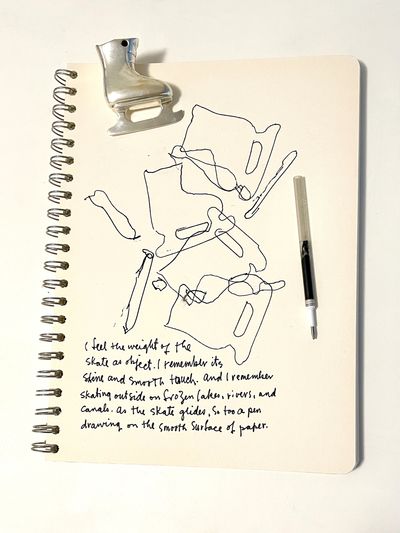 I feel the weight of the
skate as object. I remember its
shine and smooth touch. And I remember
skating outside on frozen lakes, rivers, and
canals. As the skate glides, so too a pen
drawing on the smooth surface of paper.